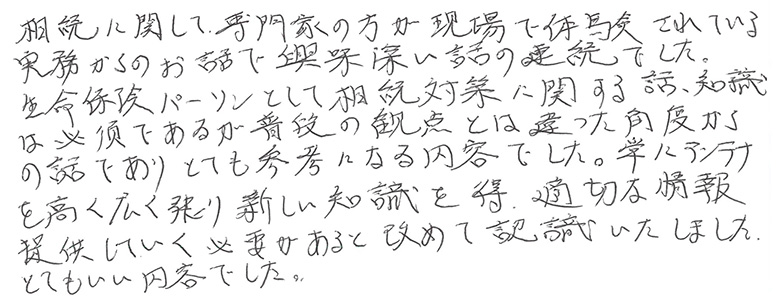 相続に関して、専門家の方が現場で体験されている
実務からのお話で興味深い話の連続でした。
生命保険パーソンとして相続対策に関する話、知識
は必須であるが普段の観点とは違った角度から
の話でありとても参考になる内容でした。常にアンテナ
を高く広く張り新しい知識を得、適切な情報
提供していく必要があると改めて認識いたしました。
とてもいい内容でした。